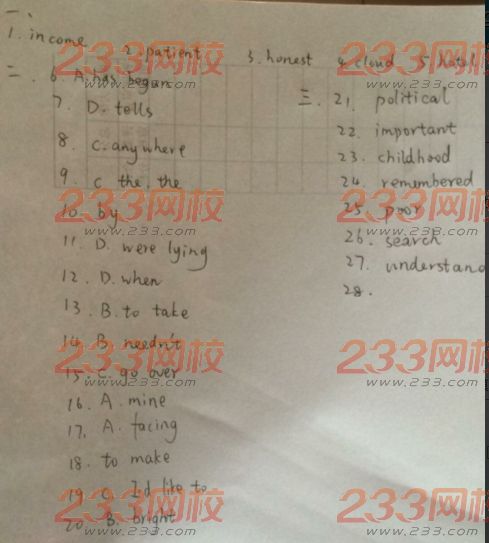 一、
1. income 2. patient 3. honest 4. cloud 5. hotel
二. 6 A. has begun
7. D. tells
8. C. anywhere
9. C the, the
10. by
11. D. were lying
12. D. when
13. B. to take
14. B needn't
15 C. go over
16. A. mine
17. A. facing
18. to make
19 C. I'd like to
20 B. bright
三. 21. political
22. important
23. childhood
24. remembered
25. poor
26. search
27. understand
28.
233网校
www.233.com
233网校
www.233.com
233网校
www.233.com
233网校
www.233.com
233网校
www.233.com
233网校
www.233.com
233网校
www.233.com
233网校
www.233.com